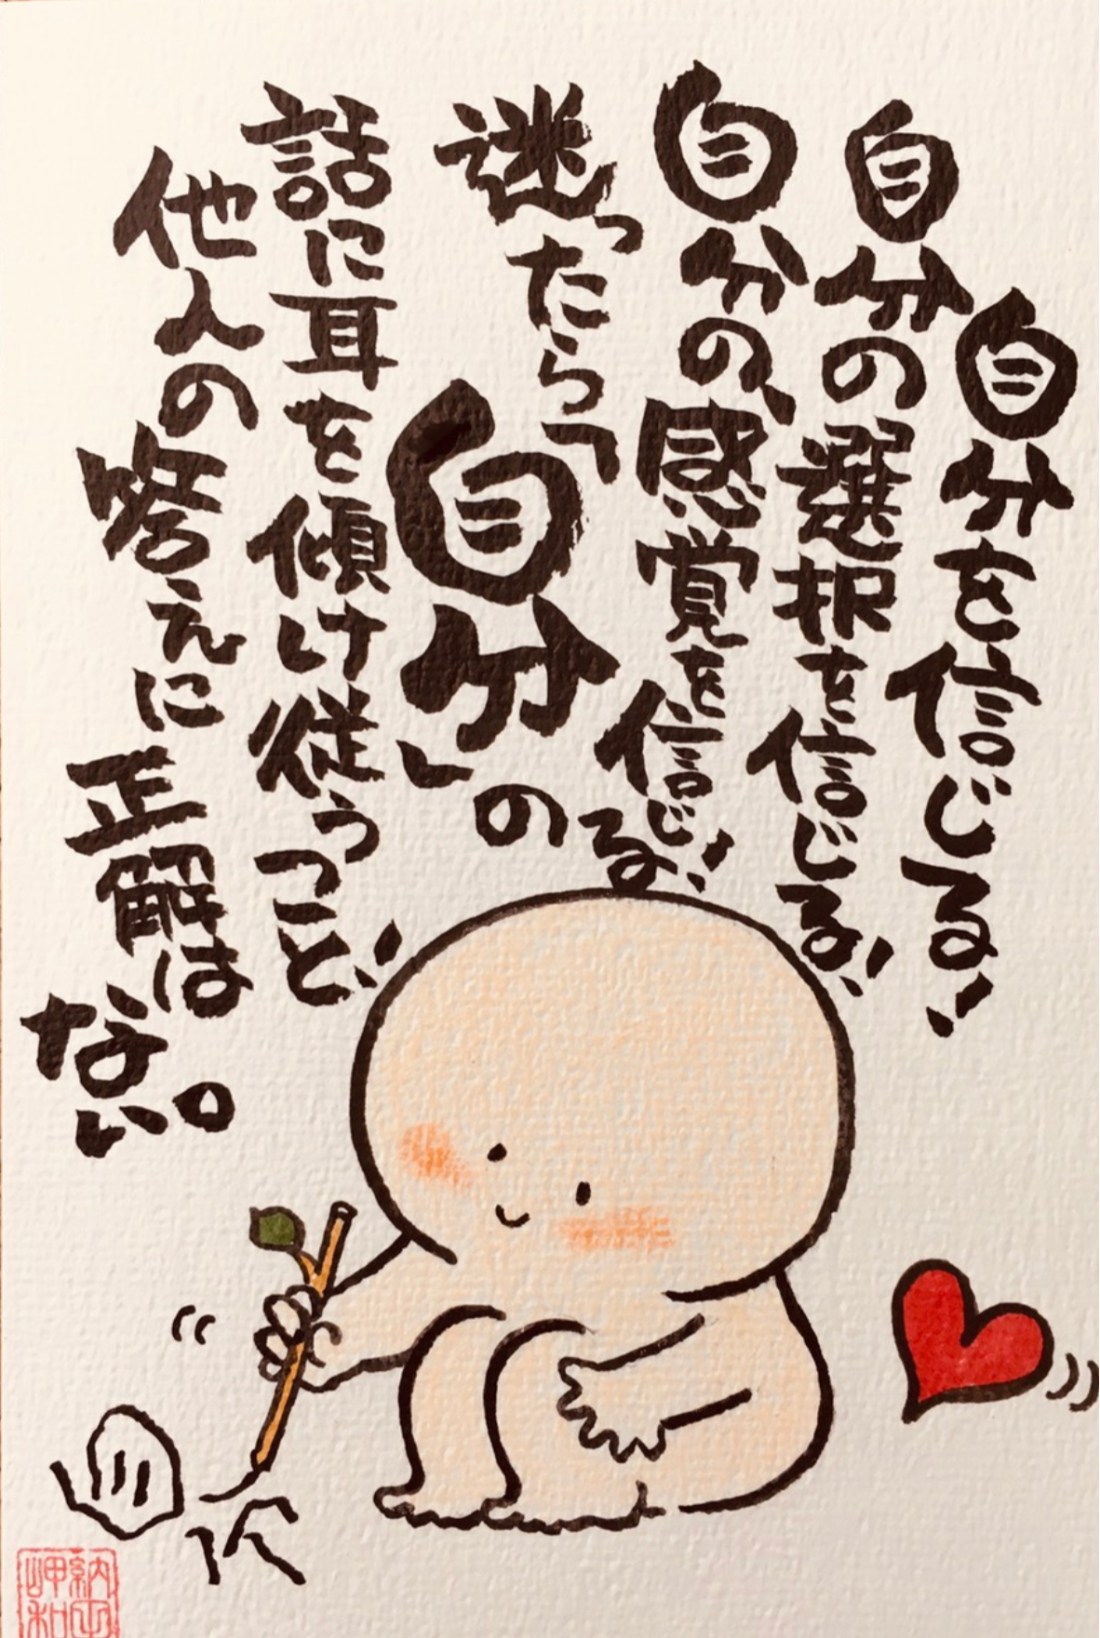 自分を信じる!
自分の選択を信じる!
自分の、感覚を信じる!
迷ったら「自分」の
話に耳を傾け従うこと!
他人の答えに正解は
ない。
自分